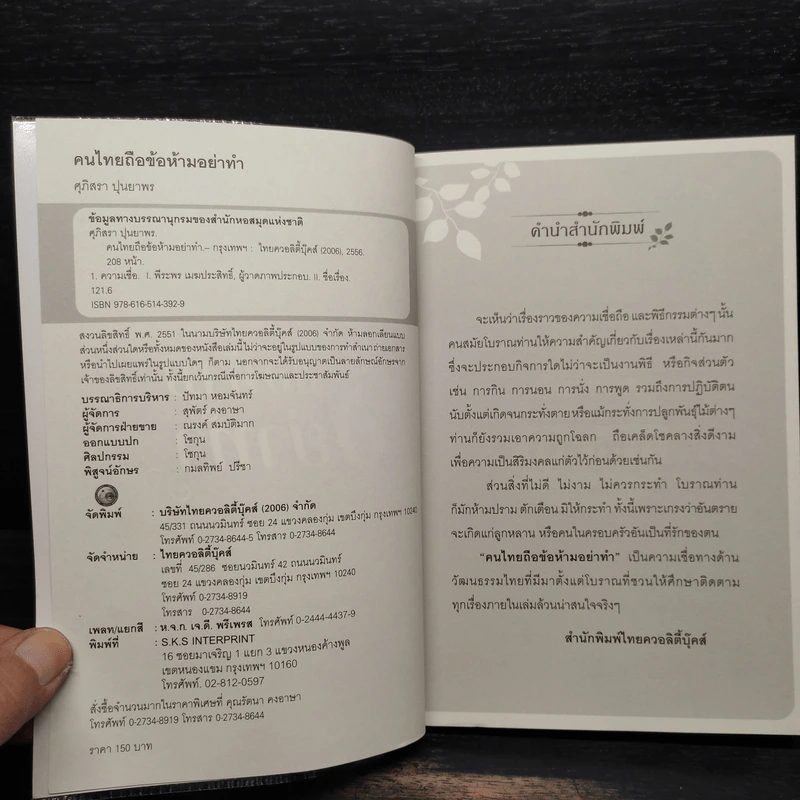 คนไทยถือข้อห้ามอย่าทำ
ศุภิสรา ปุนยาพร
ข้อมูลทางบรรณานุกรมของสำนักหอสมุดแห่งชาติ
ศุภิสรา ปุนยาพร.
คนไทยถือข้อห้ามอย่าทำ.– กรุงเทพฯ : ไทยควอลิตี้บุ๊คส์ (2006), 2556.
208 หน้า.
1. ความเชื่อ. I. พีระพร เมฆประสิทธิ์, ผู้วาดภาพประกอบ. II. ชื่อเรื่อง.
121.6
ISBN 978-616-514-392-9
สงวนลิขสิทธิ์ พ.ศ. 2551 ในนามบริษัทไทยควอลิตี้บุ๊คส์ (2006) จำกัด ห้ามลอกเลียนแบบ
ส่วนหนึ่งส่วนใดหรือทั้งหมดของหนังสือเล่มนี้ไม่ว่าจะอยู่ในรูปแบบของการทำสำเนา ถ่ายเอกสาร
หรือนำไปเผยแพร่ในรูปแบบใดๆ ก็ตาม นอกจากจะได้รับอนุญาตเป็นลายลักษณ์อักษรจาก
เจ้าของลิขสิทธิ์เท่านั้น ทั้งนี้ยกเว้นกรณีเพื่อการโฆษณาและประชาสัมพันธ์
บรรณาธิการบริหาร : ปัทมา หอมจันทร์
ผู้จัดการ : สุพัตร์ คงอาษา
ผู้จัดการฝ่ายขาย : ณรงค์ สมบัติมาก
ออกแบบปก : โชกุน
ศิลปกรรม : โชกุน
พิสูจน์อักษร : กมลทิพย์ ปรีชา
จัดพิมพ์ : บริษัทไทยควอลิตี้บุ๊คส์ (2006) จำกัด
45/331 ถนนนวมินทร์ ซอย 24 แขวงคลองกุ่ม เขตบึงกุ่ม กรุงเทพฯ 10240
โทรศัพท์ 0-2734-8644-5 โทรสาร 0-2734-8644
จัดจำหน่าย : ไทยควอลิตี้บุ๊คส์
เลขที่ 45/286 ซอยนวมินทร์ 42 ถนนนวมินทร์
ซอย 24 แขวงคลองกุ่ม เขตบึงกุ่ม กรุงเทพฯ 10240
โทรศัพท์ 0-2734-8919
โทรสาร 0-2734-8644
เพลท/แยกสี : ห.จ.ก. เจ.ดี. พรีเพรส โทรศัพท์ 0-2444-4437-9
พิมพ์ที่ : S.K.S INTERPRINT
16 ซอยมาเจริญ 1 แยก 3 แขวงหนองค้างพลู
เขตหนองแขม กรุงเทพฯ 10160
โทรศัพท์. 02-812-0597
สั่งซื้อจำนวนมากในราคาพิเศษที่ คุณรัตนา คงอาษา
โทรศัพท์ 0-2734-8919 โทรสาร 0-2734-8644
ราคา 150 บาท
คำนำสำนักพิมพ์
จะเห็นว่าเรื่องราวของความเชื่อถือ และพิธีกรรมต่างๆ นั้น
คนสมัยโบราณท่านให้ความสำคัญเกี่ยวกับเรื่องเหล่านี้กันมาก
ซึ่งจะประกอบกิจการใดไม่ว่าจะเป็นงานพิธี หรือกิจส่วนตัว
เช่น การกิน การนอน การนั่ง การพูด รวมถึงการปฏิบัติตน
นับตั้งแต่เกิดจนกระทั่งตาย หรือแม้กระทั่งการปลูกพันธุ์ไม้ต่างๆ
ท่านก็ยังรวมเอาความถูกโฉลก ถือเคล็ดโชคลางสิ่งดีงาม
เพื่อความเป็นสิริมงคลแก่ตัวไว้ก่อนด้วยเช่นกัน
ส่วนสิ่งที่ไม่ดี ไม่งาม ไม่ควรกระทำ โบราณท่าน
ก็มักห้ามปราม ตักเตือน มิให้กระทำ ทั้งนี้เพราะเกรงว่าอันตราย
จะเกิดแก่ลูกหลาน หรือคนในครอบครัวอันเป็นที่รักของตน
"คนไทยถือข้อห้ามอย่าทำ" เป็นความเชื่อทางด้าน
วัฒนธรรมไทยที่มีมาตั้งแต่โบราณที่ชวนให้ศึกษาติดตาม
ทุกเรื่องภายในเล่มล้วนน่าสนใจจริงๆ
สำนักพิมพ์ไทยควอลิตี้บุ๊คส์